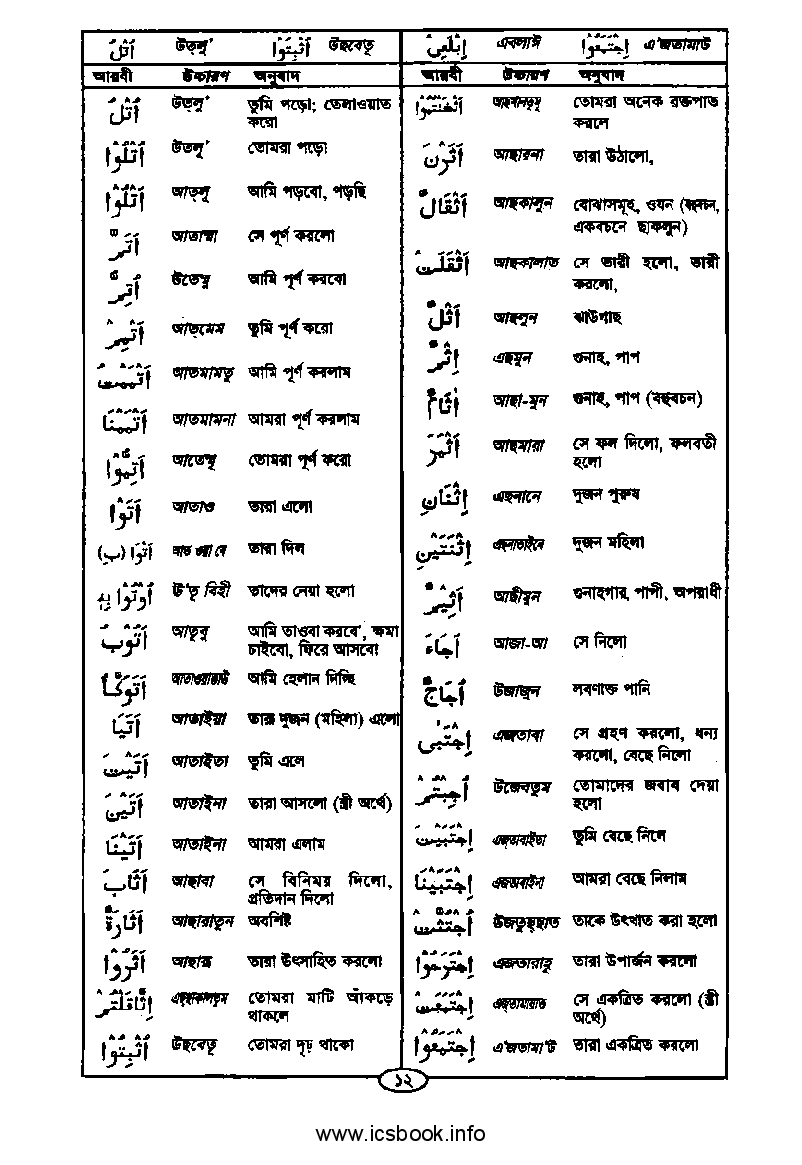 اُتْلُ উত্‌লু' اُثْبُتُوْا উছবেতূ
আরবী উচ্চারণ অনুবাদ
اُتْلُ উত্‌লু' তুমি পড়ো; তেলাওয়াত
করো
اُتْلُوْا উতলূ' তোমরা পড়ো
اَتْلُوْا আত্‌লূ আমি পড়বো, পড়ছি
اَتَمَّ আতাম্মা সে পূর্ণ করলো
اُتِمُّ উতেম্মু আমি পূর্ণ করবো
اَتْمِمْ আত্‌মেম তুমি পূর্ণ করো
اَتْمَمْتُ আতমামতু আমি পূর্ণ করলাম
اَتْمَمْنَا আতমামনা আমরা পূর্ণ করলাম
اَتِمُّوْا আতেম্মূ তোমরা পূর্ণ করো
اَتَوْا আতাও তারা এলো
اَتَوْا (بِ) তারা দিল
اُوْتُوْا بِهٖ উ'তূ বিহী তাদের নেয়া হলো
اَتُوْبُ আতূবু আমি তাওবা করবো, ক্ষমা
চাইবো, ফিরে আসবো
اَتَوَكَّأُ আমি হেলান দিচ্ছি
اَتَيَا আতাইয়া তারা দুজন (মহিলা) এলো
اَتَيْتَ আতাইতা তুমি এলে
اَتَيْنَ আতাইনা তারা আসলো (স্ত্রী অর্থে)
اَتَيْنَا আতাইনা আমরা এলাম
اَثَابَ আছাবা সে বিনিময় দিলো,
প্রতিদান দিলো
اَثَارَةٍ আছারাতুন অবশিষ্ট
اَثَرُوْا আছারূ তারা উৎসাহিত করলো
اِثَّاقَلْتُمْ তোমরা মাটি আঁকড়ে
থাকলে
اُثْبُتُوْا উছবেতূ তোমরা দৃঢ় থাকো
اِبْلَعِىْ এবলাঈ اِجْتَمَعُوْا এ'জতামাউ
আরবী উচ্চারণ অনুবাদ
اَثْخَنْتُمُوْا তোমরা অনেক রক্তপাত
করলে
اَثَرْنَ আছারনা তারা উঠালো,
اَثْقَالٌ আছকালুন বোঝাসমূহ, ওযন (বহুবচন,
একবচনে ছাকলুন)
اَثْقَلَتْ আছকালাত সে ভারী হলো, ভারী
করলো,
اَثْلٌ আছলুন ঝাউগাছ
اِثْمٌ এছমুন গুনাহ, পাপ
اٰثَامٌ আছা-মুন গুনাহ, পাপ (বহুবচন)
اَثْمَرَ আছমারা সে ফল দিলো, ফলবতী
হলো
اِثْنَانِ এছনানে দুজন পুরুষ
اِثْنَتَيْنِ এছনাতাইনে দুজন মহিলা
اَثِيْمٌ আছীমুন গুনাহগার, পাপী, অপরাধী
اَجَاءَ আজা-আ সে নিলো
اُجَاجٌ উজাজুন লবণাক্ত পানি
اِجْتَبٰى এজতাবা সে গ্রহণ করলো, ধন্য
করলো, বেছে নিলো
اُجِبْتُمْ উজেবতুম তোমাদের জবাব দেয়া
হলো
اِجْتَبَيْتَ এজতাবাইতা তুমি বেছে নিলে
اِجْتَبَيْنَا এজতাবাইনা আমরা বেছে নিলাম
اُجْتُثَّتْ উজতুছ্‌ছাত তাকে উৎখাত করা হলো
اِجْتَرَحُوْا এজতারাহূ তারা উপার্জন করলো
اِجْتَمَعَتْ সে একত্রিত করলো (স্ত্রী
অর্থে)
اِجْتَمَعُوْا এ'জতামা'উ তারা একত্রিত করলো
১২
www.icsbook.info